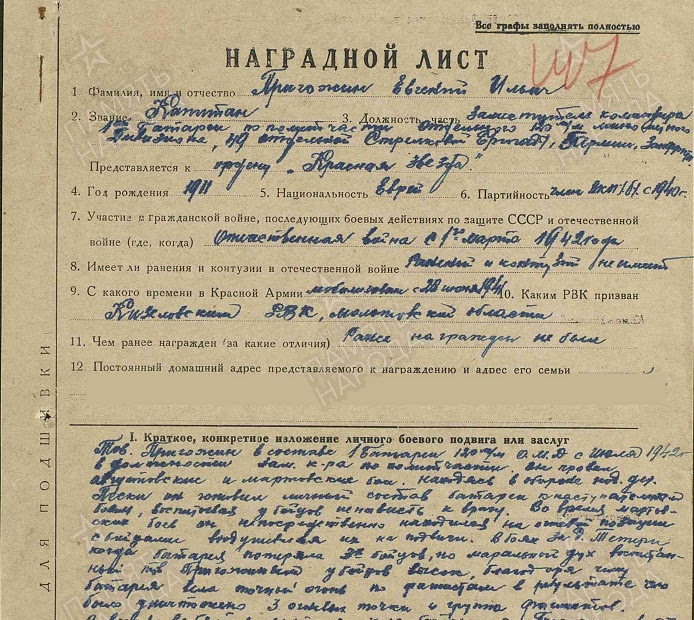 Все графы заполнять полностью
НАГРАДНОЙ ЛИСТ
1 Фамилия, имя и отчество Пригожин Евгений Ильич
2. Звание Капитан 3. Должность, часть Заместитель командира
1ой батареи по полит части отдельного 120 м/м минометного
дивизиона, 49 отдельной Стрелковой бригады,
Представляется к ордену „Красная звезда"
4. Год рождения 1911 5. Национальность Еврей 6. Партийность член ВКП(б) с 1940г.
7. Участие в гражданской войне, последующих боевых действиях по защите СССР и отечественной
войне (где, когда) Отечественная война с 1го марта 1942 года
8. Имеет ли ранения и контузии в отечественной войне Ранений и контузий не имеет
9. С какого времени в Красной Армии мобилизован с 28 июня 1941 10. Каким РВК призван
Кизеловский РВК, Молотовской области
11. Чем ранее награжден (за какие отличия) Ранее награжден не был
12. Постоянный домашний адрес представляемого к награждению и адрес его семьи
I. Краткое, конкретное изложение личного боевого подвига или заслуг
Тов. Пригожин в составе 1 батареи 120 м/м О.М.Д с июля 1942г
в должности зам. к-ра по политчасти, он провел
августовские и мартовские бои. Находясь в обороне под дер.
Пески он готовил личный состав батареи к наступательным
боям, воспитывая у бойцов ненависть к врагу. Во время мартов-
ских боев он непосредственно находился на огневой позиции
с бойцами воодушевляя их на подвиги. В боях за д.
когда батарея потеряла бойцов, но моральный дух воспитан-
ный тов Пригожиным у бойцов высок, благодаря чему
батарея вела точный огонь по фашистам в результате чего
было уничтожено 3 огневых точки и группа фашистов.
ДЛЯ ПОДШИВКИ
ПАМЯТЬ НАРОДА